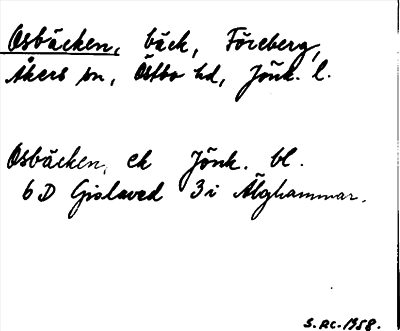 Osbäcken, bäck, Föreberg,
Åkers sn, Östbo hd, Jönk. l.
Osbäcken, ek Jönk. bl.
6 D Gislaved 3i Älghammar.
S.Ac. 1958.